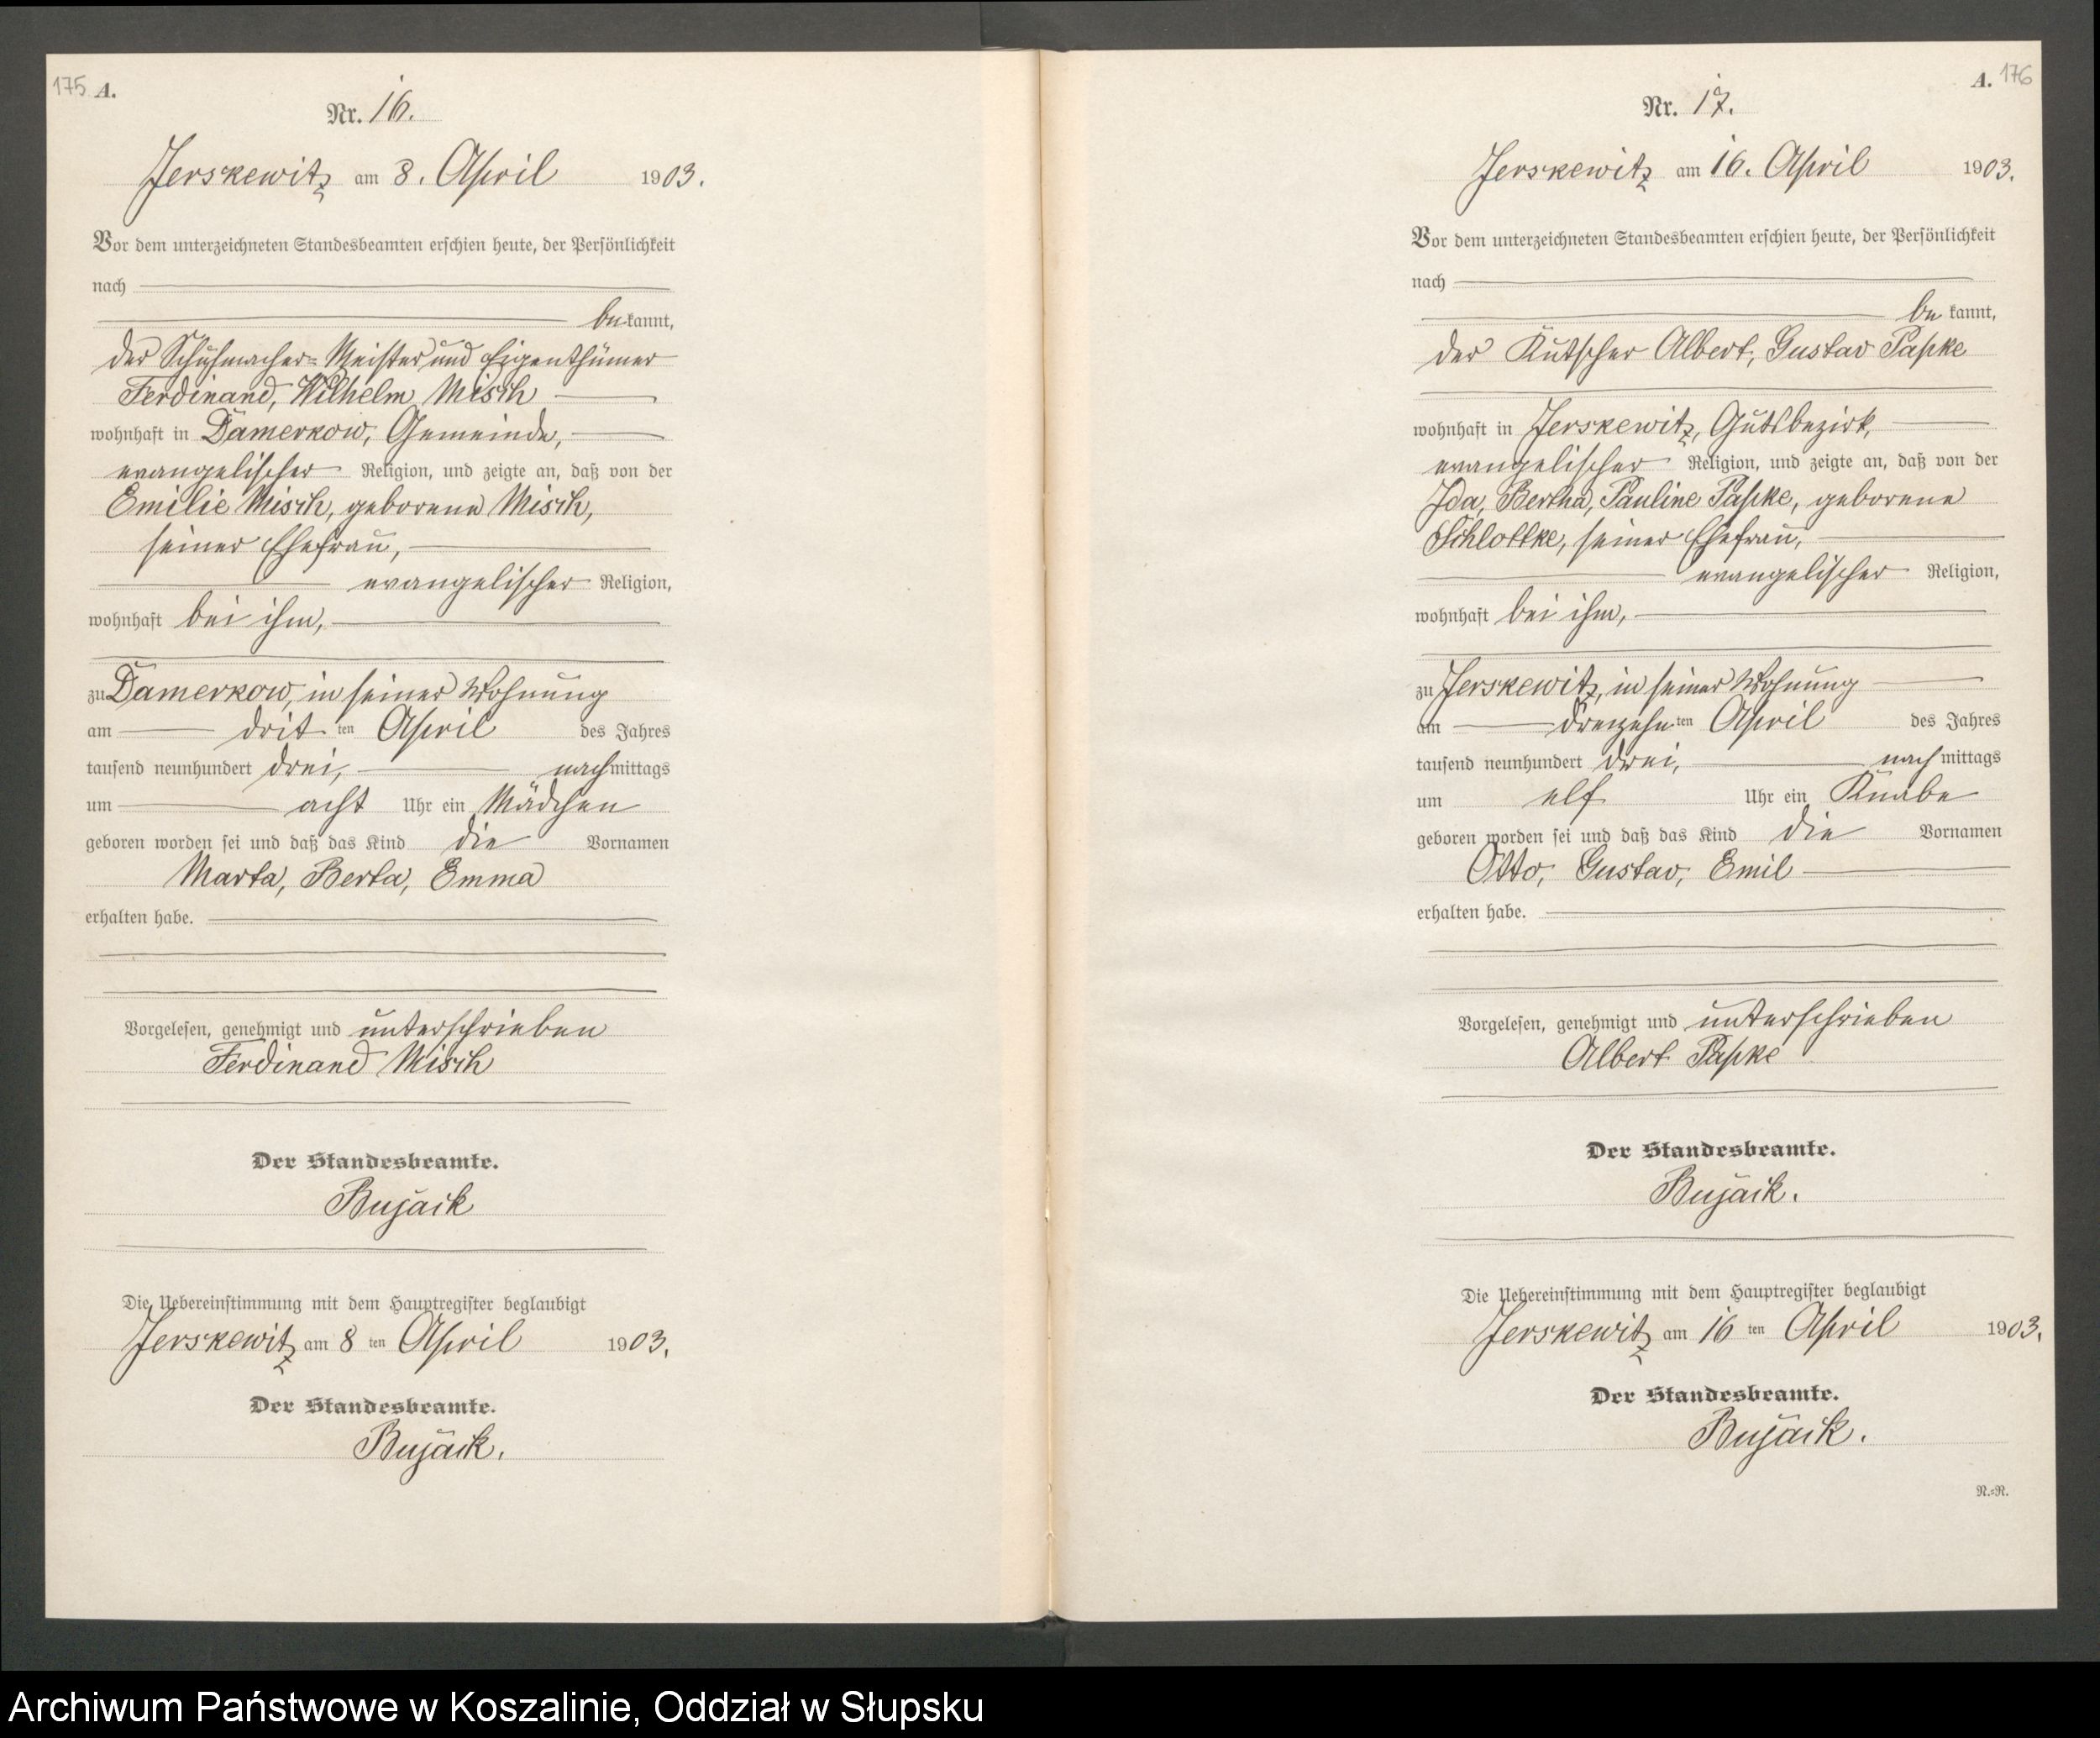 175 A.
Nr. 16.
Jerskewitz am 8. April 1903.
Vor dem unterzeichneten Standesbeamten erschien heute, der Persönlichkeit
nach
bekannt,
der Schuhmacher-Meister und Eigenthümer
Ferdinand, Wilhelm Misch
wohnhaft in Damerkow, Gemeinde,
evangelischer Religion, und zeigte an, daß von der
Emilie Misch, geborene Misch,
seiner Ehefrau,
evangelischer Religion,
wohnhaft bei ihm,
zu Damerkow, in seiner Wohnung
am dritten April des Jahres
tausend neunhundert drei, nachmittags
um acht Uhr ein Mädchen
geboren worden sei und daß das Kind die Vornamen
Marta, Berta, Emma
erhalten habe.
Vorgelesen, genehmigt und unterschrieben
Ferdinand Misch
Der Standesbeamte.
Bujack
Die Uebereinstimmung mit dem Hauptregister beglaubigt
Jerskewitz am 8 ten April 1903.
Der Standesbeamte.
Bujack.
A. 176
Nr. 17.
Jerskewitz am 16. April 1903.
Vor dem unterzeichneten Standesbeamten erschien heute, der Persönlichkeit
nach
bekannt,
der Kutscher Albert, Gustav Papke
wohnhaft in Jerskewitz, Gutsbezirk,
evangelischer Religion, und zeigte an, daß von der
Ida, Bertha, Pauline Papke, geborene
Schlottke, seiner Ehefrau,
evangelischer Religion,
wohnhaft bei ihm,
zu Jerskewitz, in seiner Wohnung
am dreizehnten April des Jahres
tausend neunhundert drei, nachmittags
um elf Uhr ein Knabe
geboren worden sei und daß das Kind die Vornamen
Otto, Gustav, Emil
erhalten habe.
Vorgelesen, genehmigt und unterschrieben
Albert Papke
Der Standesbeamte.
Bujack.
Die Uebereinstimmung mit dem Hauptregister beglaubigt
Jerskewitz am 16 ten April 1903.
Der Standesbeamte.
Bujack.
R.=R.
Archiwum Państwowe w Koszalinie, Oddział w Słupsku